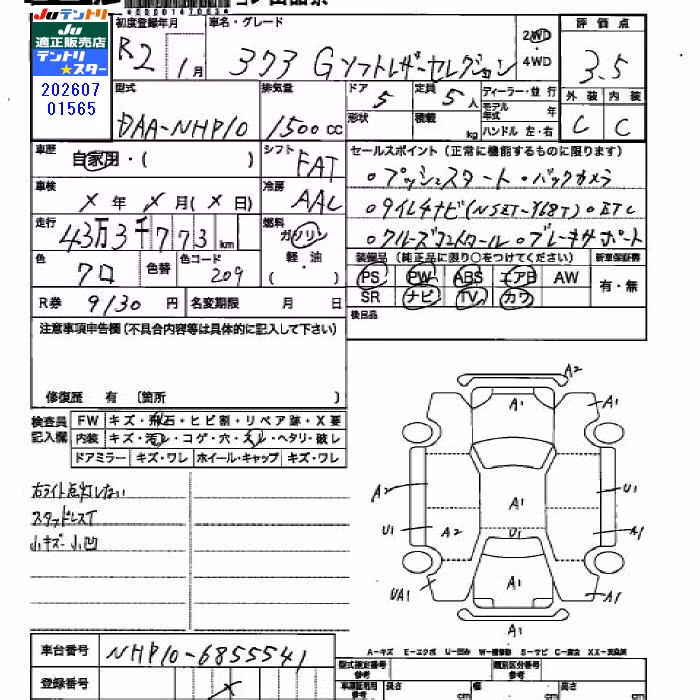 JUテントリ
JU
適正販売店
テントリ
★スター
202607
01565
初度登録年月
R2 1月
車名・グレード
アクア Gソフトレザーセレクション
2WD
4WD
評価点
3.5
外装 内装
C C
型式
DAA-NHP10
排気量
1500cc
ドア
5
定員
5人
形状
積載
kg
ディーラー・並行
モデル年式 年
ハンドル 左・右
車歴
自家用・( )
シフト
FAT
車検
X年X月(X日)
冷房
AAC
走行
43万3千773km
燃料
ガソリン
軽・油
( )
色
クロ
色替
色コード
209
R券 9130円
名変期限 月 日
セールスポイント(正常に機能するものに限ります)
○プッシュスタート ○バックカメラ
○クルーズコントロール ○ブレーキサポート
装備品(純正品に限り○をつけてください)
新車保証書
PS PW ABS エアB AW
有・無
SR ナビ TV カワ
後日品
注意事項申告欄(不具合内容等は具体的に記入して下さい)
修復歴 有 〔箇所 〕
検査員
記入欄
FW キズ・飛石・ヒビ割・リペア跡・X要
内装 キズ・汚レ・コゲ・穴・スレ・ヘタリ・破レ
ドアミラー キズ・ワレ ホイール・キャップ キズ・ワレ
右ライト点灯しない
スタッドレスT
小キズ・小凹
A2
A1
A1
A2
A1
U1
U1
A2
U1
A1
UA1
A1
A1
A1
A-キズ E-エクボ U-凹み W-補修跡 S-サビ C-腐食 XX-交換済
車台番号
NHP10-6855541
登録番号
X
型式指定番号
参考
類別区分番号
参考
長さ cm
幅 cm
高さ cm